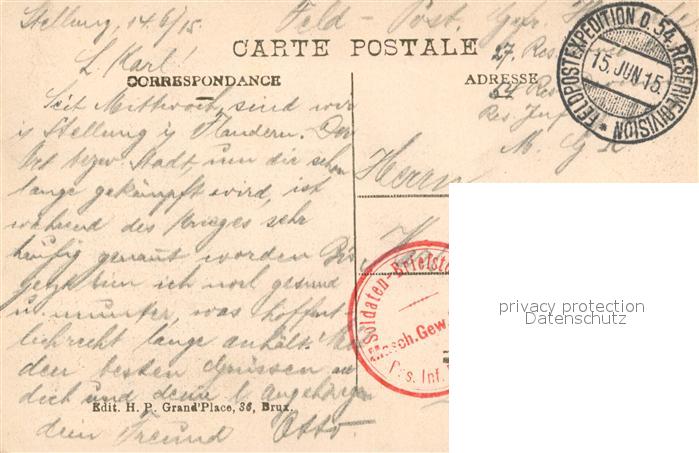 Stellung, 14.6/15.
Feld - Post. Gefr.
CARTE POSTALE
27. Res.
L. Karl!
CORRESPONDANCE
ADRESSE
54 Res.
Res. Inf.
M. G. K.
FELDPOSTEXPEDITION D. 54. RESERVEDIVISION
15. JUN 15.
Seit Mittwoch sind wir
in Stellung in Flandern. Der
Ort bezw. Stadt, um die schon
lange gekämpft wird, ist
während des Krieges sehr
häufig genannt worden. Bis
jetzt bin ich noch gesund
u. munter, was hoffent
lich recht lange anhält. Mit
den besten Grüssen an
dich und deine l. Angehörigen
dein Freund Otto.
Herrn
Soldaten-Briefste
Masch. Gew.
Res. Inf.
Edit. H. P. Grand'Place, 36, Brux.
privacy protection
Datenschutz